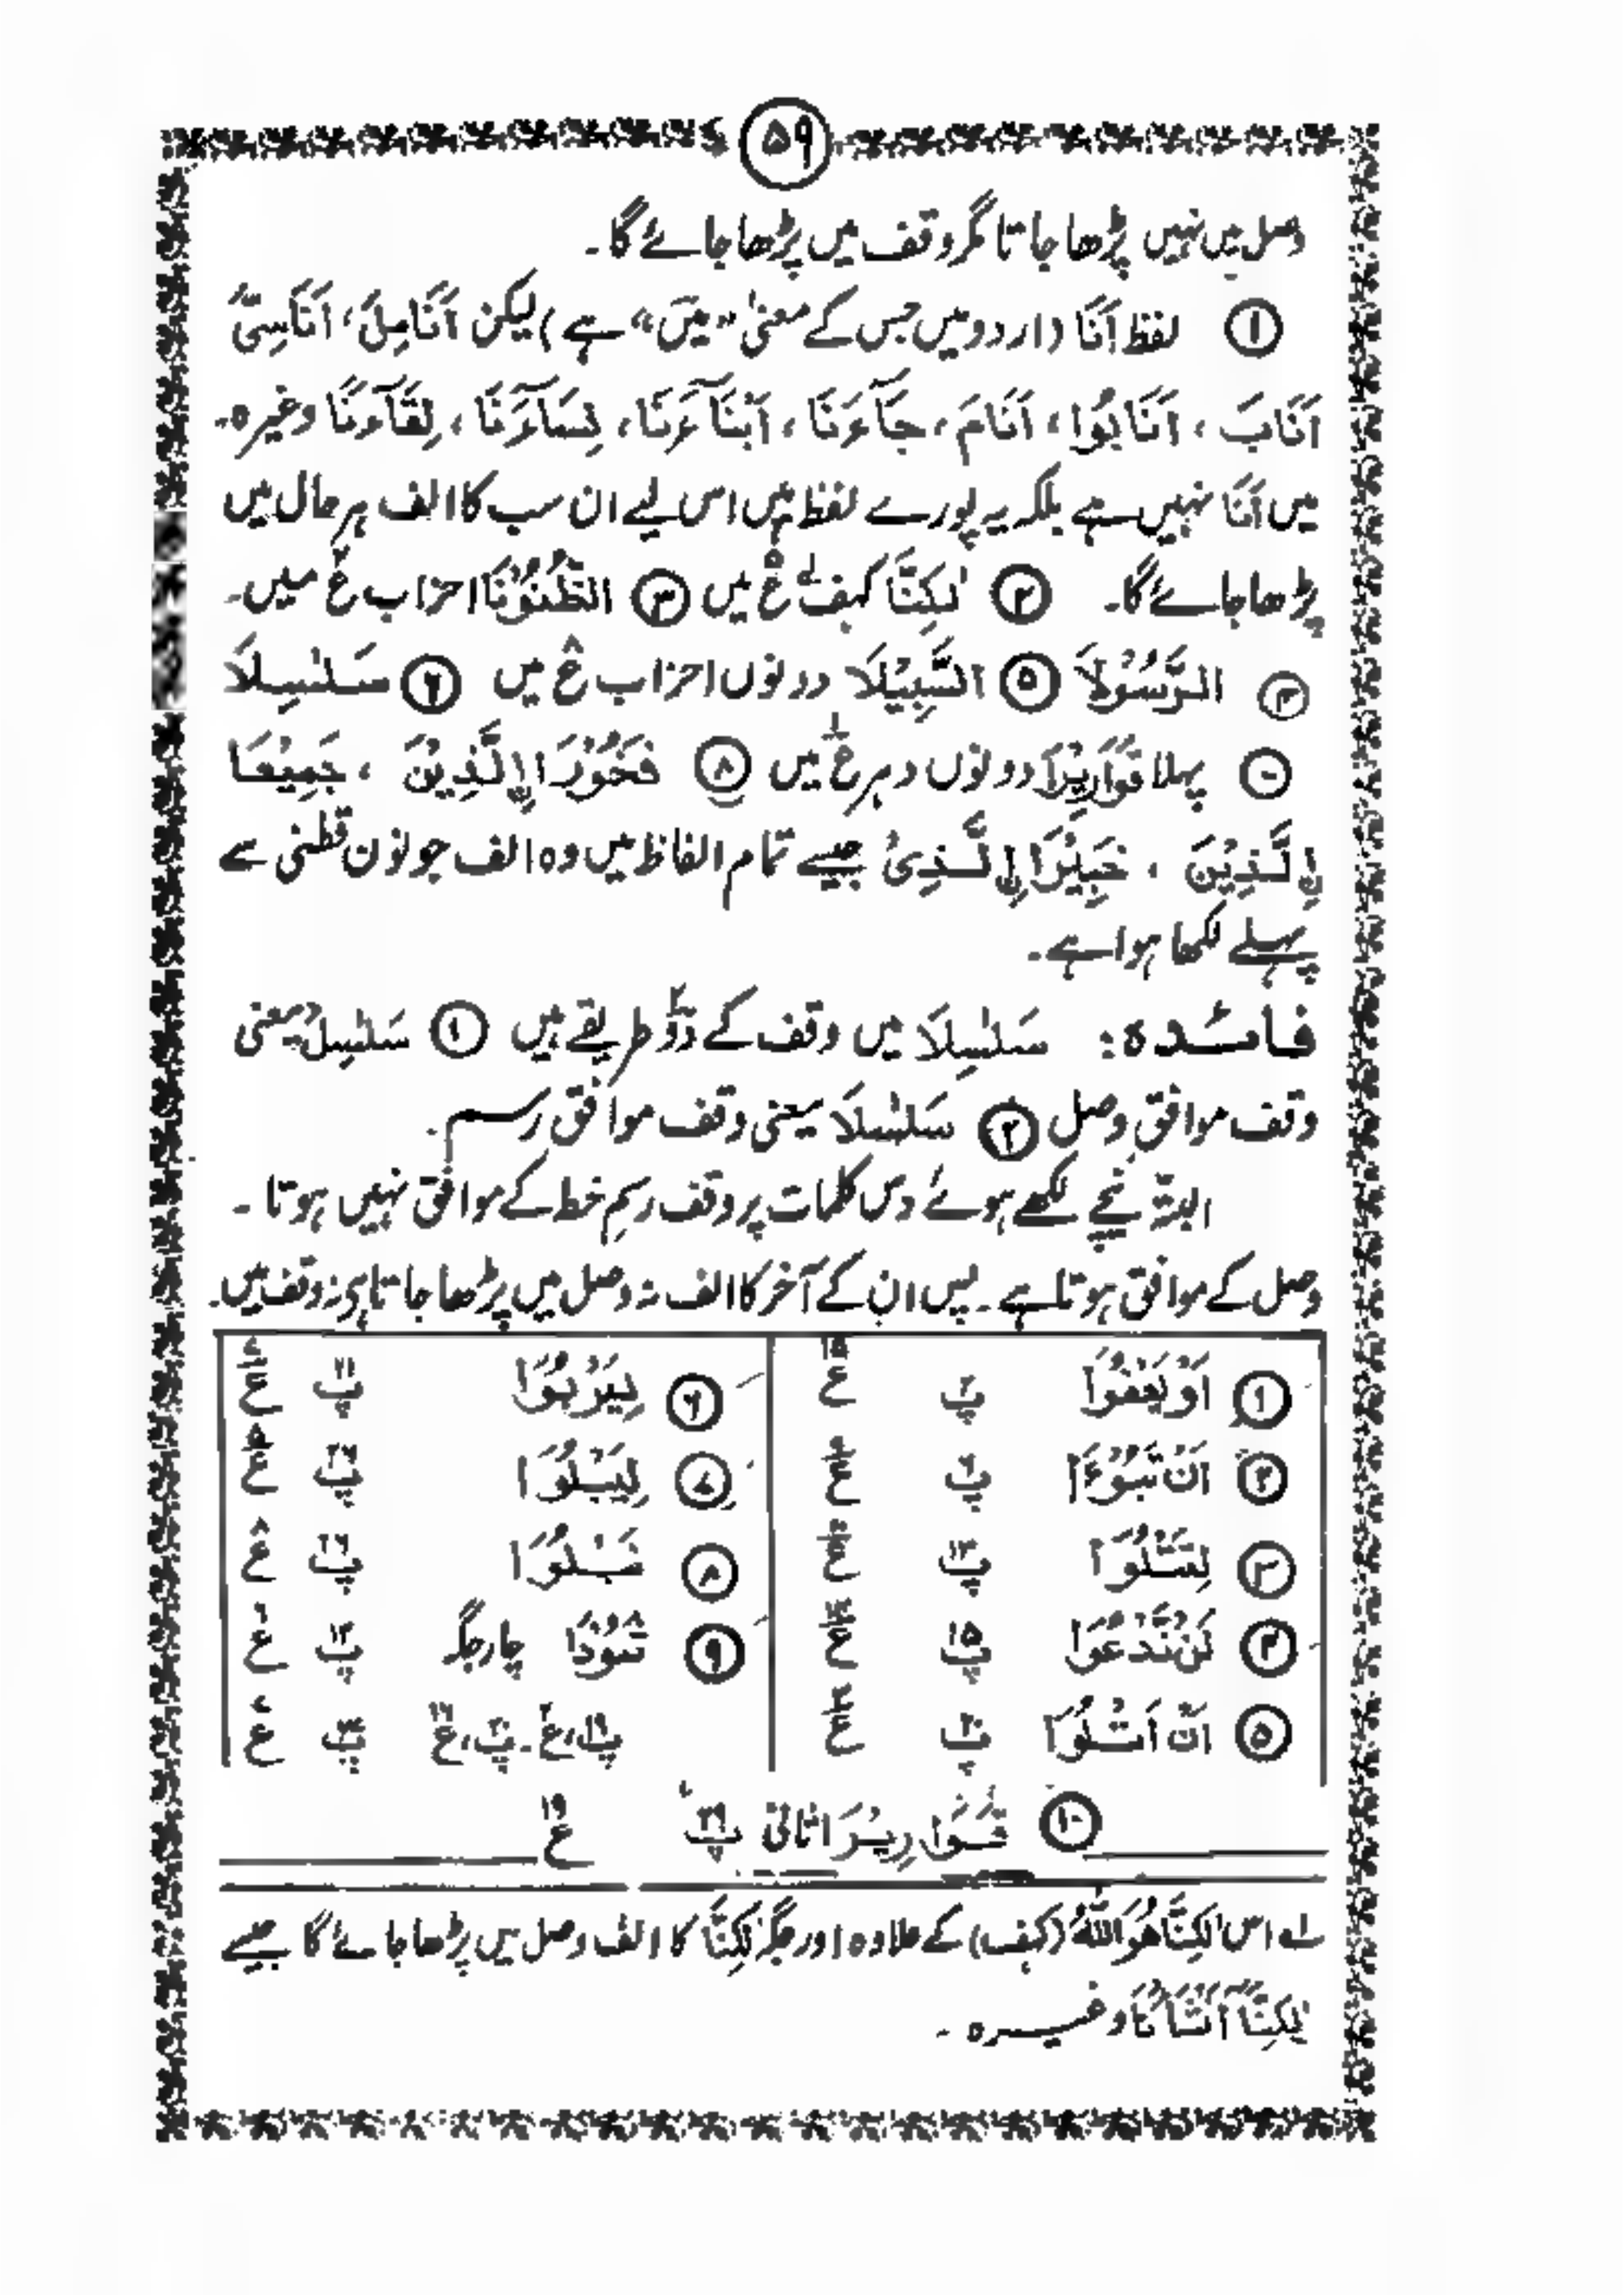 ۵۹
وصل میں نہیں پڑھا جاتا مگر وقف میں پڑھا جائے گا۔
① لفظ اَنَا (اردو میں جس کے معنیٰ "میں" ہے) لیکن اَنَامِلَ، اَنَاسِیَّ
اَنَابَ، اَنَابُوا، اَنَامَ، جَآءَنَا، اَبْنَآءَنَا، نِسَآءَنَا، لِقَآءَنَا وغیرہ۔
میں اَنَا نہیں ہے بلکہ یہ پورے لفظ ہیں اسی لیے ان سب کا الف ہر حال میں
پڑھا جائے گا۔ ② لٰکِنَّا کہف میں ③ الظُّنُوْنَا احزاب ع میں۔
④ الرَّسُوْلَا ⑤ السَّبِیْلَا دونوں احزاب ع میں ⑥ سَلٰسِلَا
پہلا قَوَارِیْرَا دونوں دہر ع میں ⑧ فَخُوْرَا اِلَّذِیْنَ ، جَمِیْعَا
اِلَّذِیْنَ ، خَبِیْرَا اِلَّذِیْ جیسے تمام الفاظ میں وہ الف جو نون قطنی سے
پہلے لکھا ہوا ہے۔
فائدہ: سَلٰسِلَا میں وقف کے دو طریقے ہیں ① سَلٰسِلْ یعنی
وقف موافقِ وصل ② سَلٰسِلَا یعنی وقف موافقِ رسم۔
البتہ نیچے لکھے ہوئے دس کلمات پر وقف رسمِ خط کے موافق نہیں ہوتا ۔
وصل کے موافق ہوتا ہے ۔ پس ان کے آخر کا الف نہ وصل میں پڑھا جاتا ہے نہ وقف میں۔
① اَوْ یَعْفُوَا پ۲ ع۱۵ ⑥ لِیَرْبُوَا پ۲۱ ع
② اَنْ تَبُوْءَا پ۶ ع ⑦ لِیَبْلُوَا پ۲۶ ع
③ لِتَتْلُوَا پ۱۳ ع ⑧ نَبْلُوَا پ۲۶ ع۸
④ لَنْ نَّدْعُوَا پ۱۵ ع ⑨ ثَمُوْدَا چار جگہ پ۱۲ ع
⑤ اَنْ اَتْلُوَا پ۲۰ ع پ۱۹، ع۔ پ۲۰، ع پ ع
⑩ قَوَارِیْرَا ثانی پ۲۹ ع۱۹
لے اس لٰکِنَّا هُوَ اللّٰهُ (کہف) کے علاوہ اور جگہ لٰکِنَّا کا الف وصل میں پڑھا جائے گا جیسے
لٰکِنَّآ اَنْشَاْنَا وغیرہ ۔